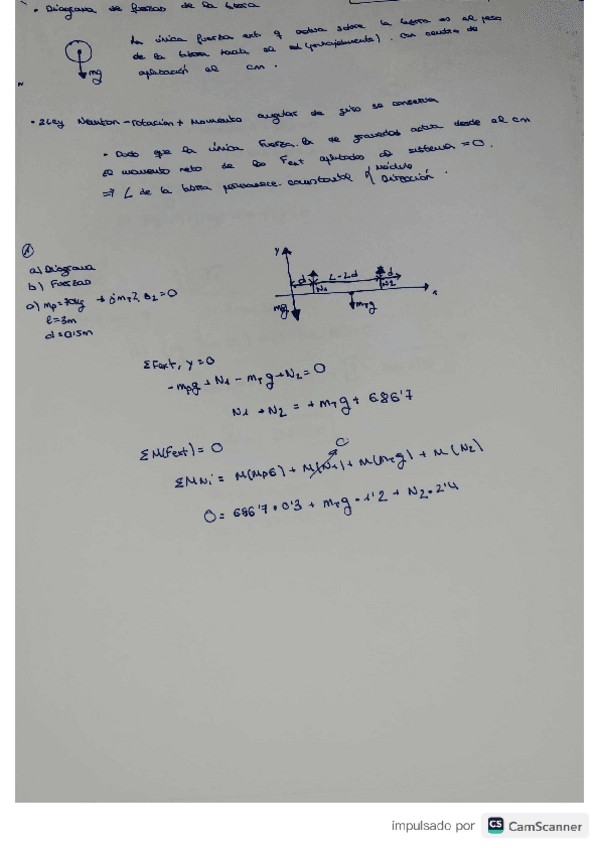 • Diagrama de fuerzas de la barra
La única fuerza ext q actúa sobre la barra es el peso
de la barra hacia el . con centro de
aplicación el cm.
mg
• 2 Ley Newton - rotación + Momento angular de giro se conserva
• Dado que la única Fuerza, la de gravedad actúa desde el cm
el momento neto de las Fext aplicadas al sistema = 0.
⇒ L de la barra permanece constante módulo
dirección.
a) Diagrama
b) Fuerzas
a) mp=70kg → ¿mT?, N2=0
l=3m
d=0'5m
y
d L-2d d
N1 N2 x
mg mTg
ΣFext, y=0
-mpg + N1 - mTg + N2 = 0
N1 + N2 = + mTg + 686'7
ΣM(Fext) = 0
0
ΣMNi = M(mpg) + M(N1) + M(mTg) + M(N2)
0 = 686'7 · 0'3 + mTg · 1'2 + N2 · 2'4
impulsado por CS CamScanner